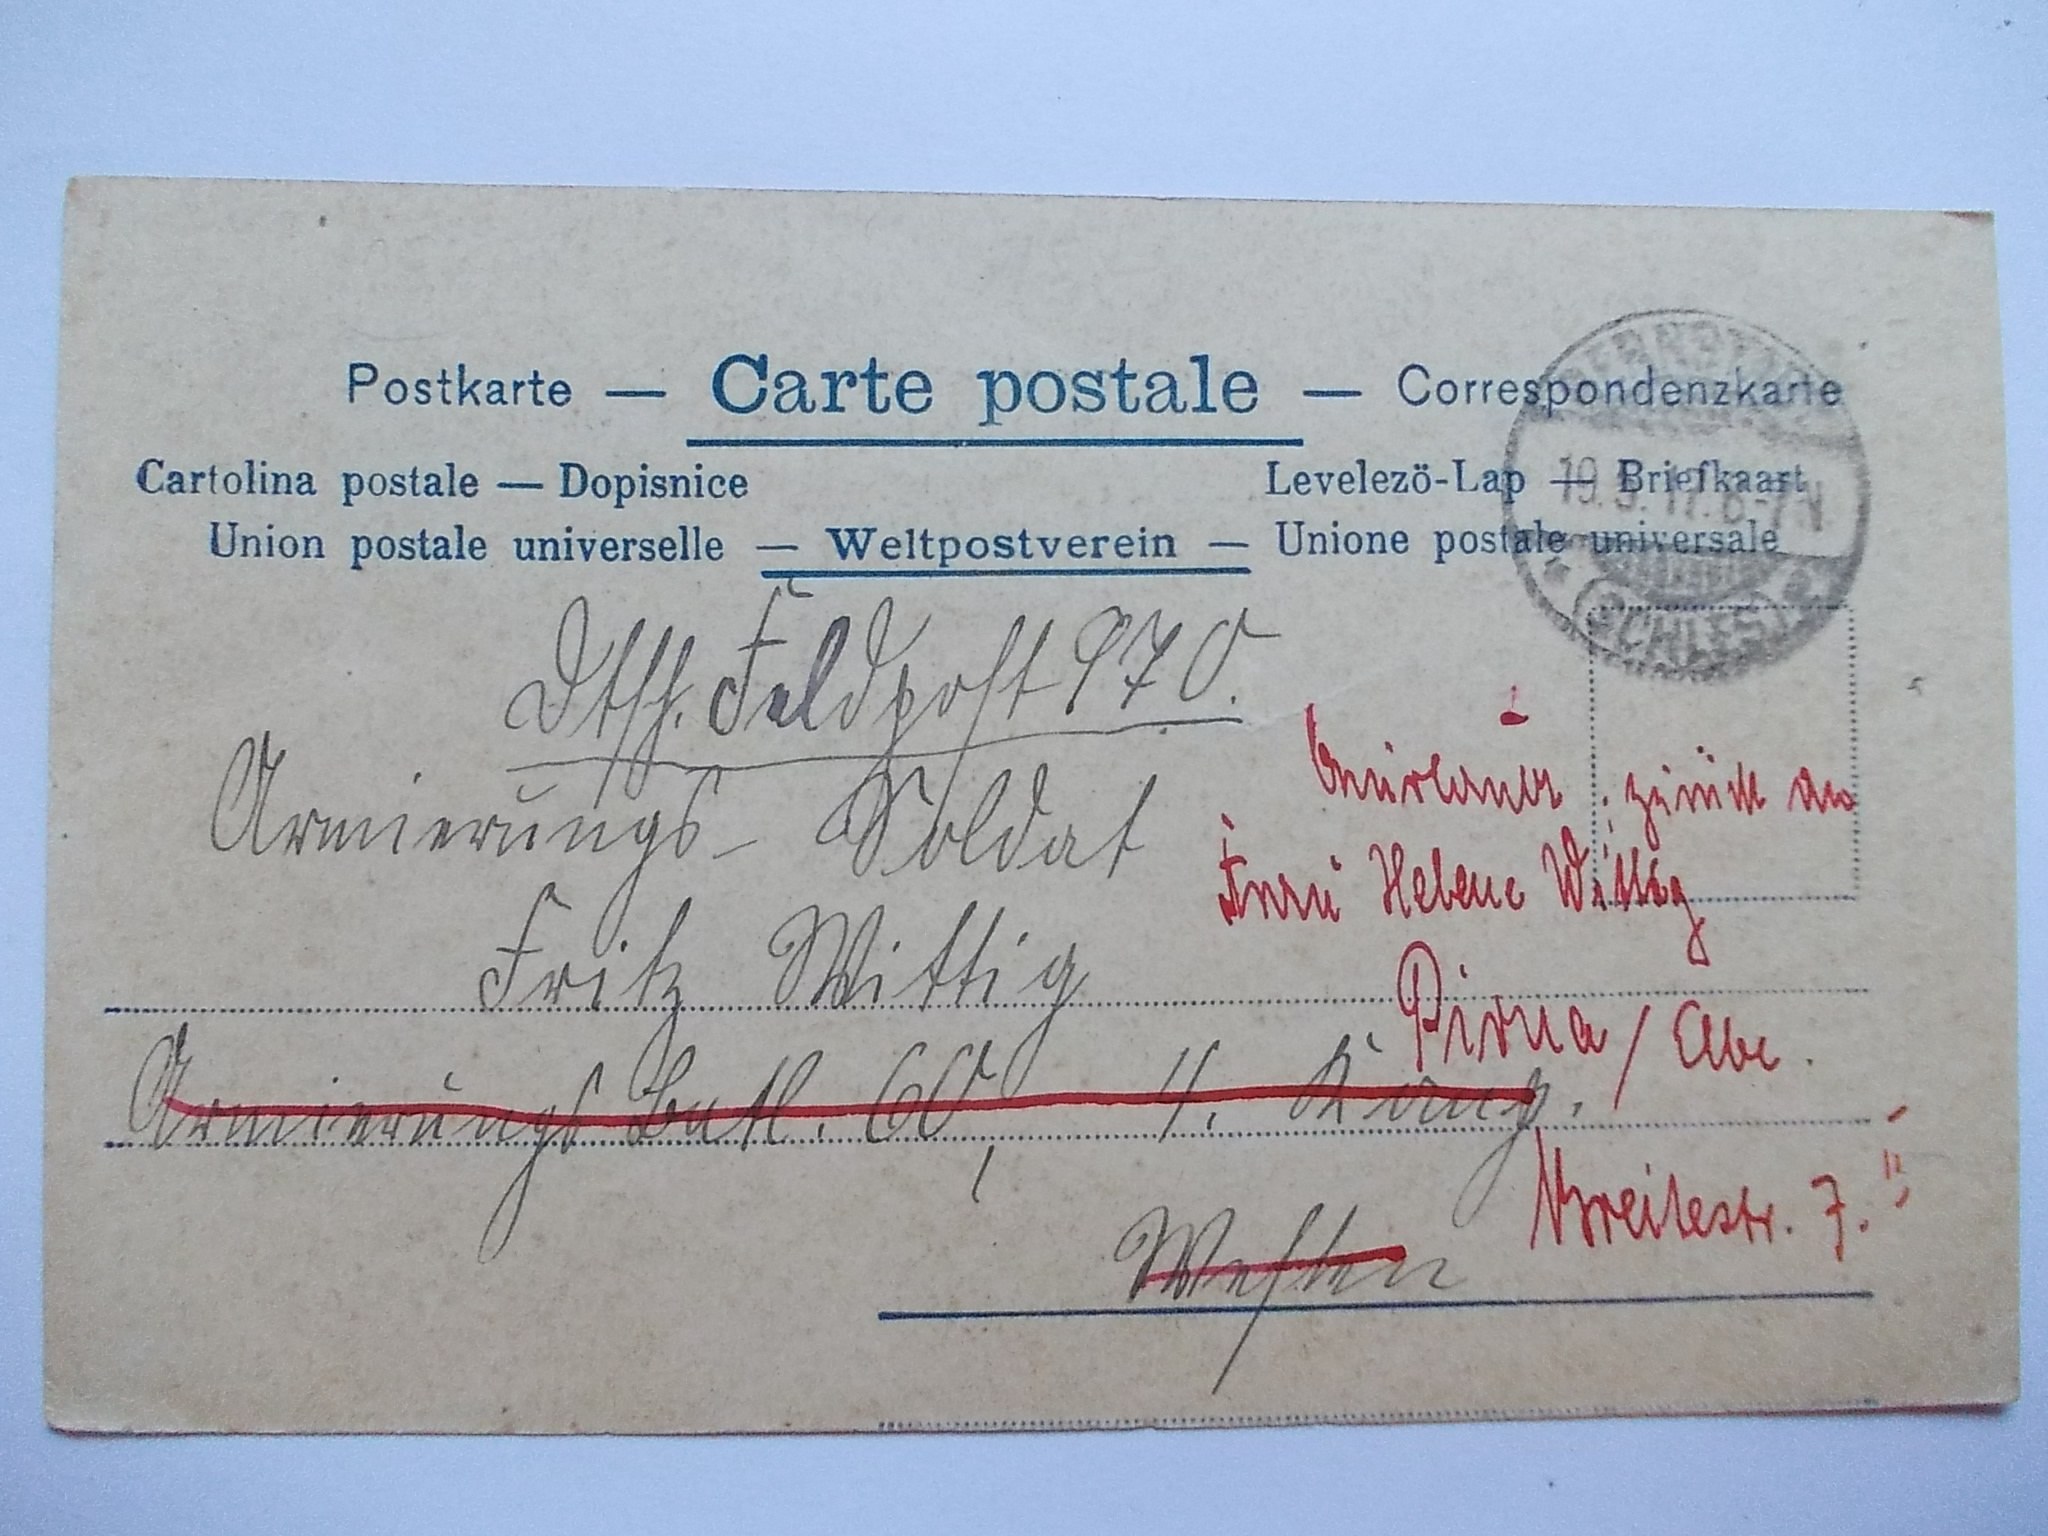 Postkarte — Carte postale — Correspondenzkarte
Cartolina postale — Dopisnice Levelezö-Lap — Briefkaart
Union postale universelle — Weltpostverein — Unione postale universale
BERNSTADT
19.5.17. 6-7 N
(SCHLES)
Dtsch. Feldpost 970.
Armierungs-Soldat
Fritz Wittig
Armierungs Batl. 60, 4. Komp.
Westen
zurück an
Frau Helene Wittig
Pirna / Elbe.
Breitestr. 7."